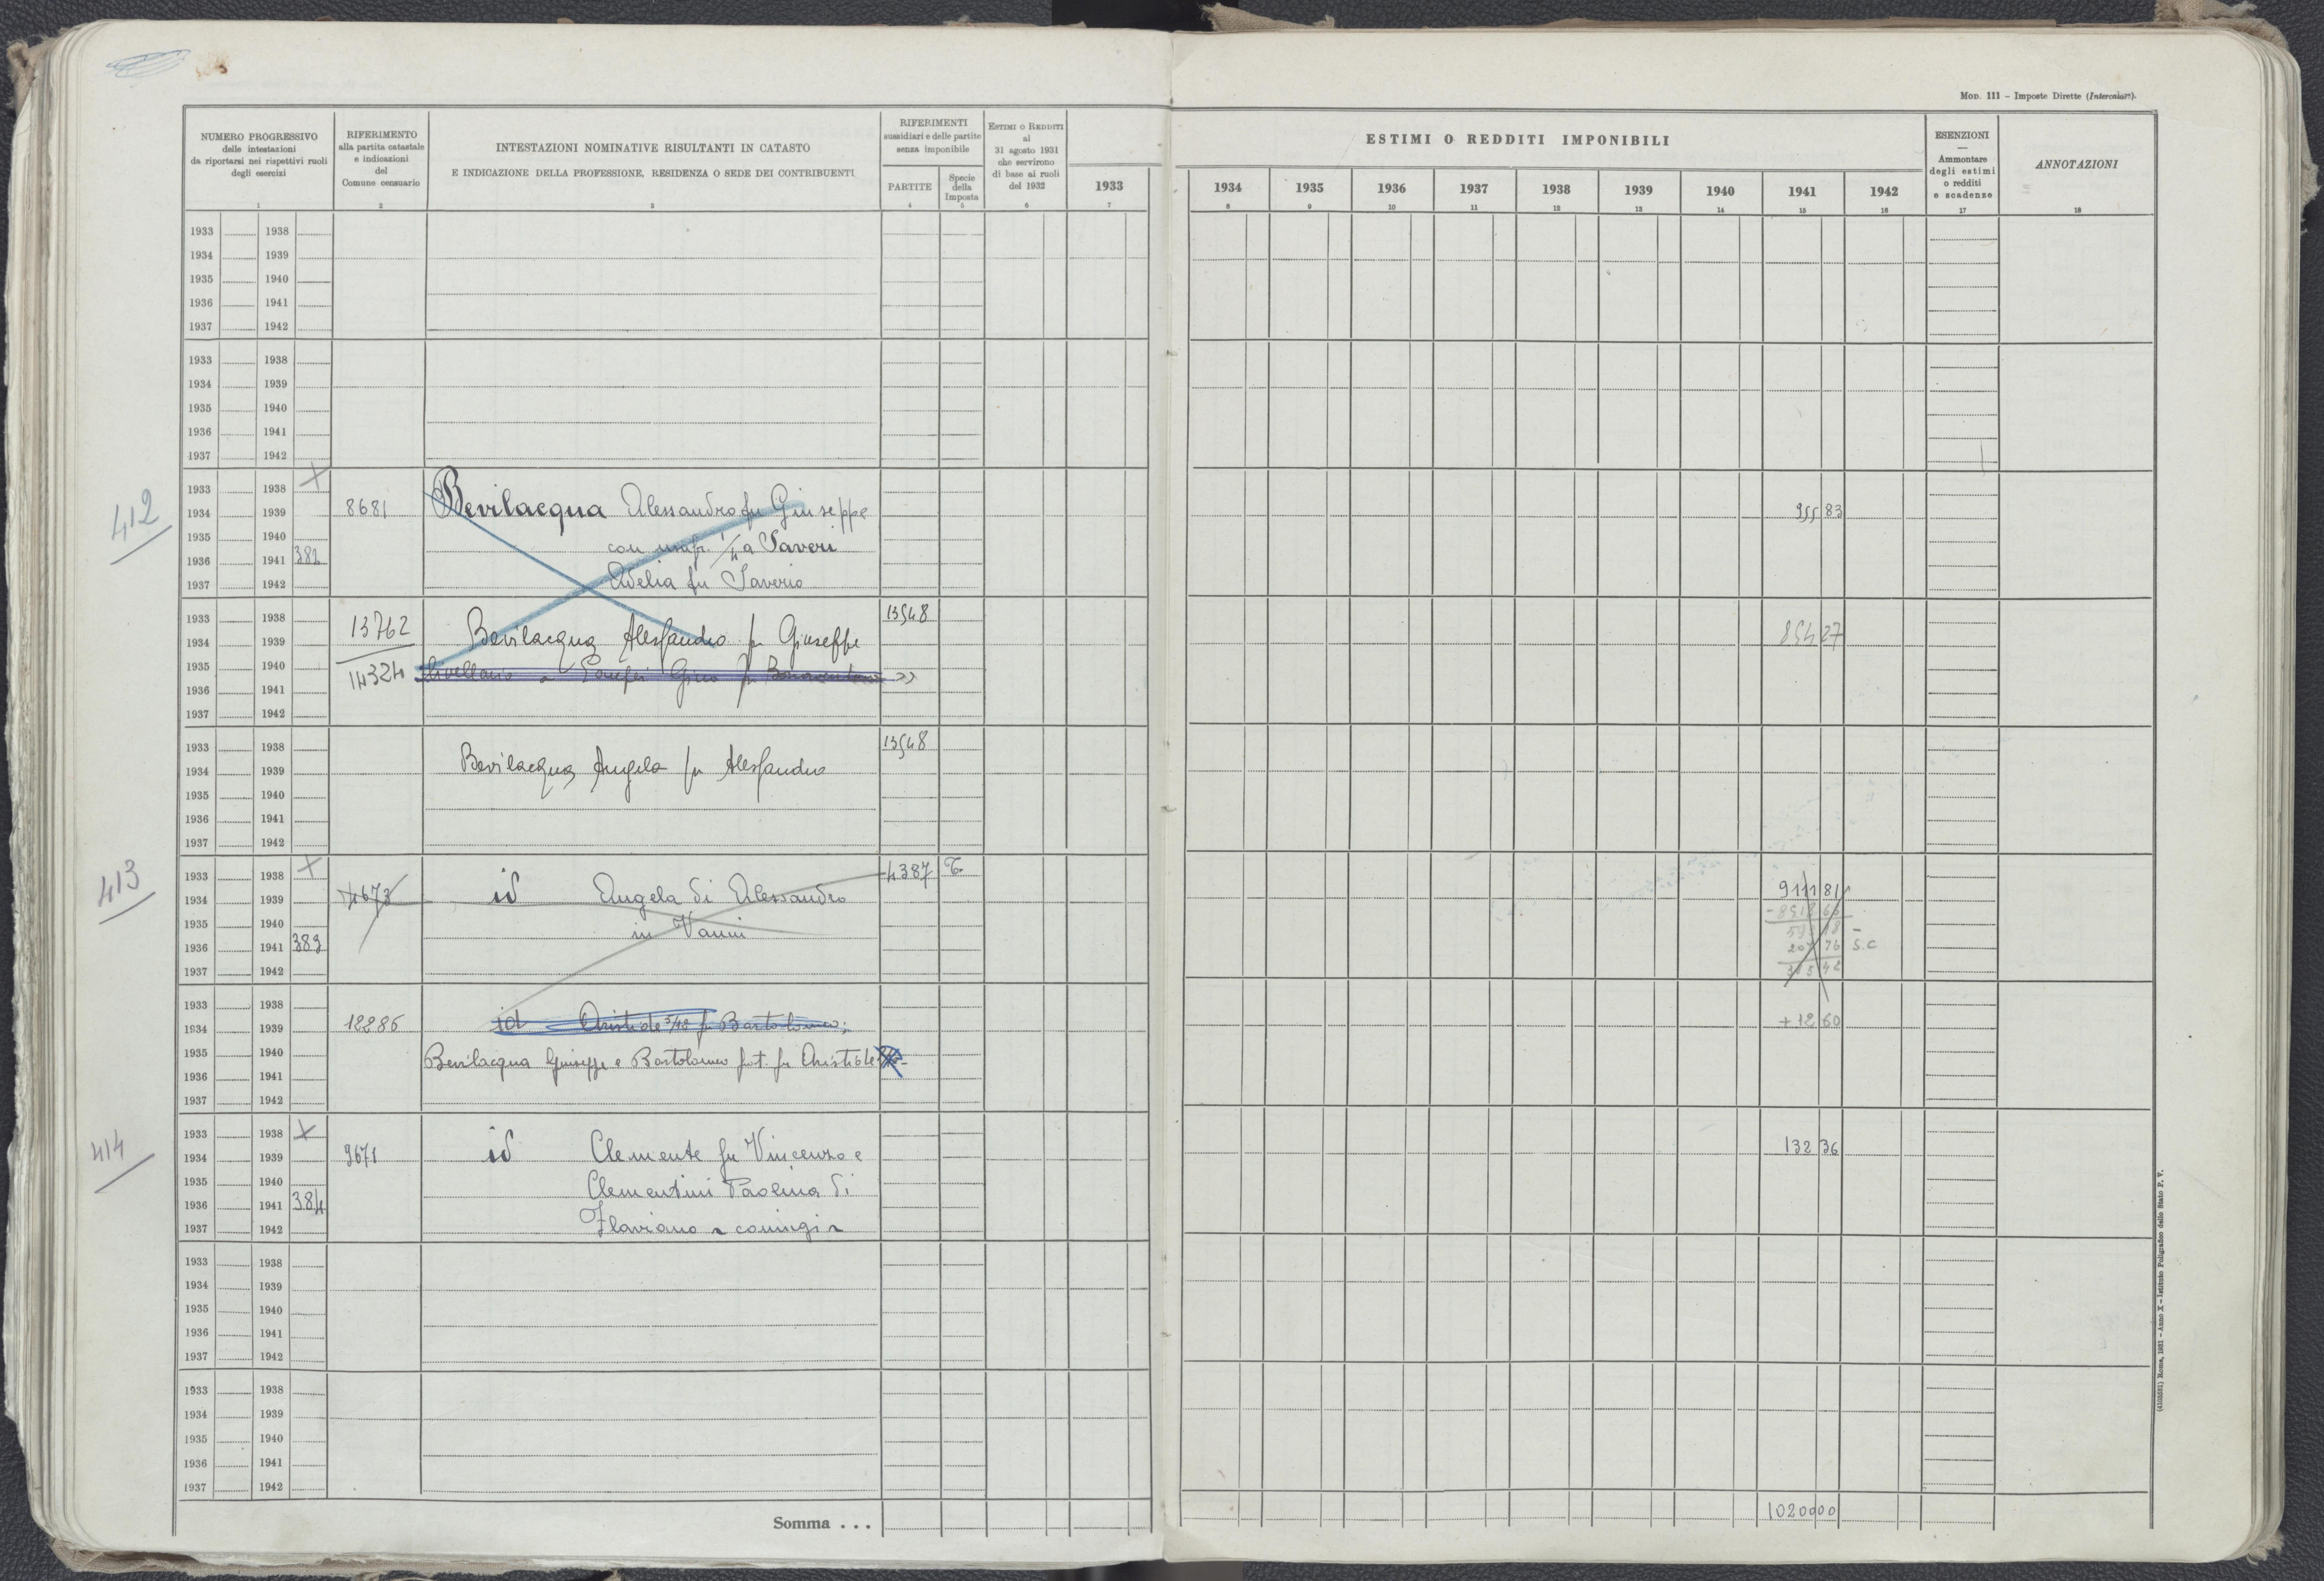 MOD. 111 – Imposte Dirette (Intercalare).
NUMERO PROGRESSIVO
delle intestazioni
da riportarsi nei rispettivi ruoli
degli esercizi
1
RIFERIMENTO
alla partita catastale
e indicazioni
del
Comune censuario
2
INTESTAZIONI NOMINATIVE RISULTANTI IN CATASTO
E INDICAZIONE DELLA PROFESSIONE, RESIDENZA O SEDE DEI CONTRIBUENTI
3
RIFERIMENTI
sussidiari e delle partite
senza imponibile
PARTITE
4
Specie
della
Imposta
5
ESTIMI O REDDITI
al
31 agosto 1931
che servirono
di base ai ruoli
del 1932
6
1933
7
ESTIMI O REDDITI IMPONIBILI
1934 1935 1936 1937 1938 1939 1940 1941 1942
8 9 10 11 12 13 14 15 16
ESENZIONI
—
Ammontare
degli estimi
o redditi
e scadenze
17
ANNOTAZIONI
18
1933 1938
1934 1939
1935 1940
1936 1941
1937 1942
1933 1938
1934 1939
1935 1940
1936 1941
1937 1942
412
1933 1938 X
1934 1939 8681 Bevilacqua Alessandro fu Giuseppe 955 83
1935 1940 con usufr. 1/4 a Saveri
1936 1941 382
1937 1942 Adelia fu Saverio
1933 1938 13762 13548
1934 1939 Bevilacqua Alessandro fu Giuseppe 854 27
1935 1940 14324 livellario a Gino fu
1936 1941
1937 1942
1933 1938 13548
1934 1939 Bevilacqua Angela fu Alessandro
1935 1940
1936 1941
1937 1942
413
1933 1938 X 4387 T.
1934 1939 4673 id Angela di Alessandro 9111 81
1935 1940 in Vanni
1936 1941 383 207 76 S.C
1937 1942
1933 1938
1934 1939 12286 id Aristide 3/48 fu Bartolomeo; + 12 60
1935 1940 Bevilacqua Giuseppe e Bartolomeo frat. fu Aristide
1936 1941
1937 1942
414
1933 1938 X
1934 1939 9671 id Clemente fu Vincenzo e 132 36
1935 1940 Clementini Paolina di
1936 1941 384
1937 1942 Flaviano coniugi
1933 1938
1934 1939
1935 1940
1936 1941
1937 1942
1933 1938
1934 1939
1935 1940
1936 1941
1937 1942
Somma . . . 10200 00
(4103581) Roma, 1931 – Anno X – Istituto Poligrafico dello Stato P. V.